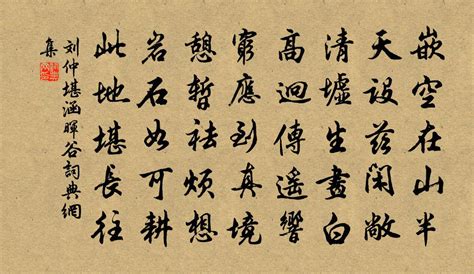 嵌空在山半
天設茲閑敞
清墟生晝白
高迴傳遙響
窮應到真境
憩暫祛煩想
岩石如可耕
此地堪長往
刘仲堪涵暉谷詞典網
集